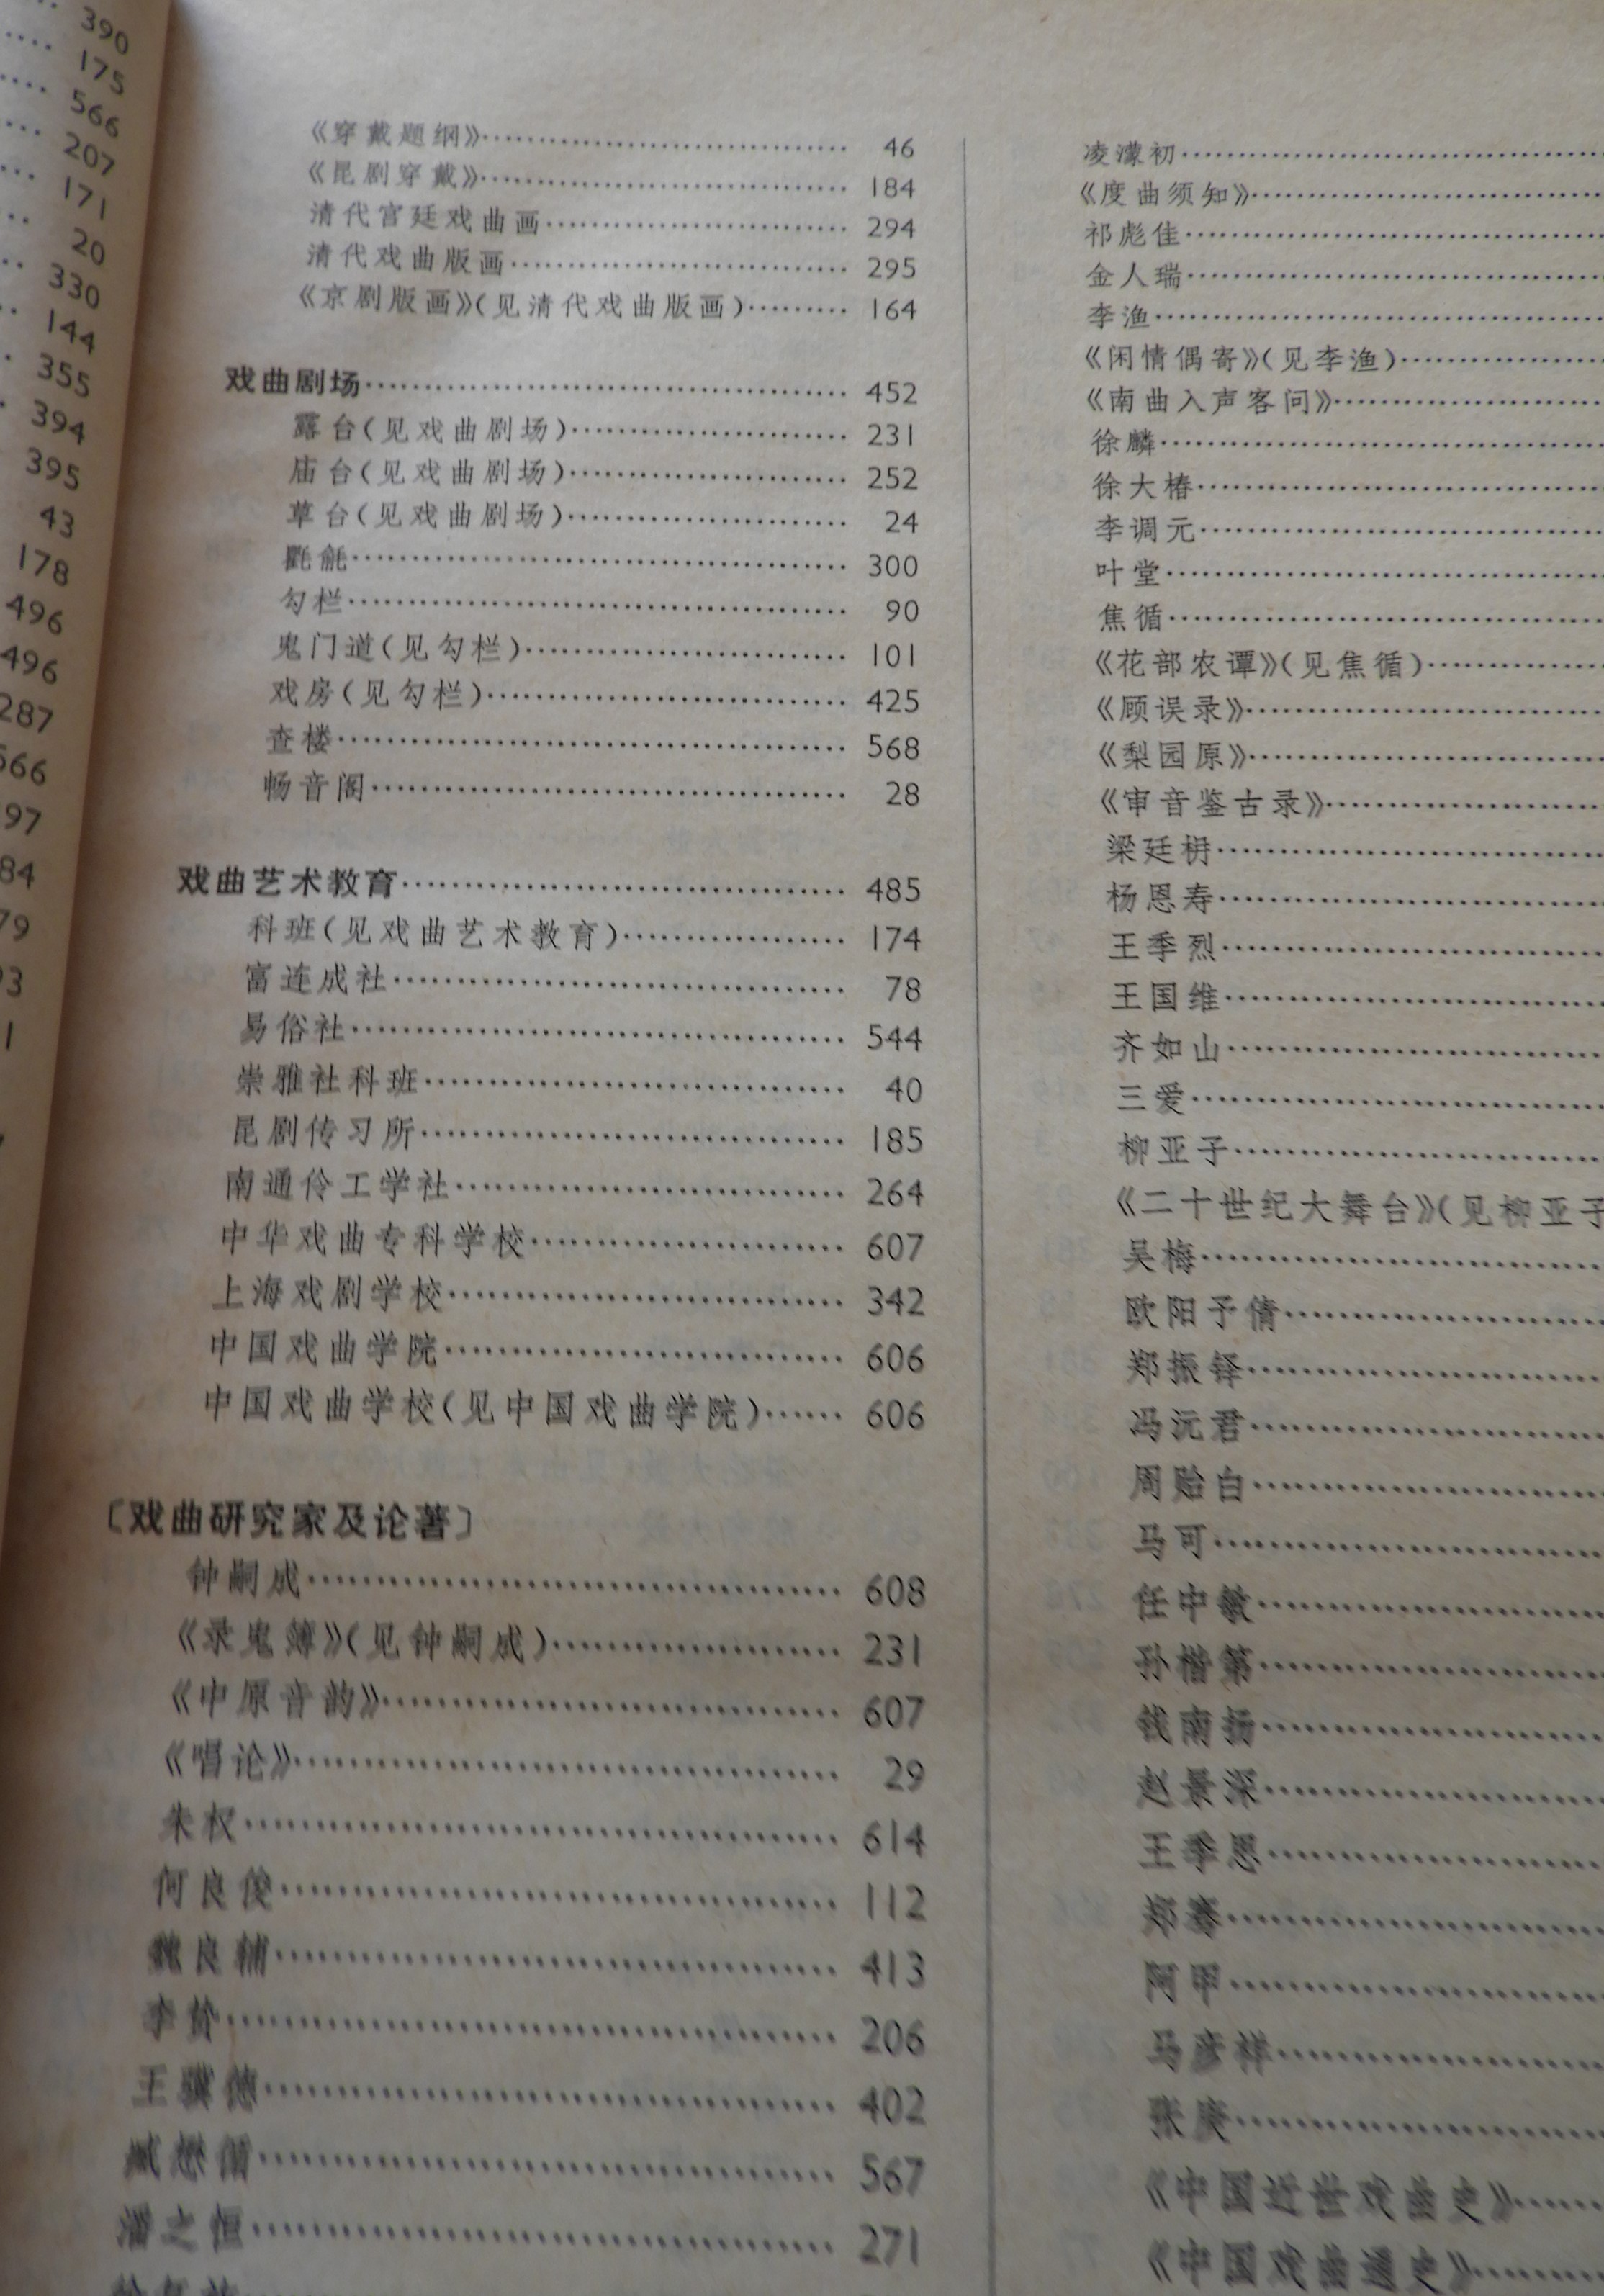 390
175
566
207
171
20
330
144
355
394
395
43
178
496
496
287
566
97
84
79
《穿戴题纲》…… 46
《昆剧穿戴》…… 184
清代宫廷戏曲画…… 294
清代戏曲版画…… 295
《京剧版画》(见清代戏曲版画)…… 164
戏曲剧场…… 452
露台(见戏曲剧场)…… 231
庙台(见戏曲剧场)…… 252
草台(见戏曲剧场)…… 24
氍毹…… 300
勾栏…… 90
鬼门道(见勾栏)…… 101
戏房(见勾栏)…… 425
查楼…… 568
畅音阁…… 28
戏曲艺术教育…… 485
科班(见戏曲艺术教育)…… 174
富连成社…… 78
易俗社…… 544
崇雅社科班…… 40
昆剧传习所…… 185
南通伶工学社…… 264
中华戏曲专科学校…… 607
上海戏剧学校…… 342
中国戏曲学院…… 606
中国戏曲学校(见中国戏曲学院)…… 606
〔戏曲研究家及论著〕
钟嗣成…… 608
《录鬼簿》(见钟嗣成)…… 231
《中原音韵》…… 607
《唱论》…… 29
朱权…… 614
何良俊…… 112
魏良辅…… 413
李贽…… 206
王骥德…… 402
臧懋循…… 567
潘之恒…… 271
凌濛初……
《度曲须知》……
祁彪佳……
金人瑞……
李渔……
《闲情偶寄》(见李渔)……
《南曲入声客问》……
徐麟……
徐大椿……
李调元……
叶堂……
焦循……
《花部农谭》(见焦循)……
《顾误录》……
《梨园原》……
《审音鉴古录》……
梁廷枏……
杨恩寿……
王季烈……
王国维……
齐如山……
三爱……
柳亚子……
《二十世纪大舞台》(见柳亚子
吴梅……
欧阳予倩……
郑振铎……
冯沅君……
周贻白……
马可……
任中敏……
孙楷第……
钱南扬……
赵景深……
王季思……
郑骞……
阿甲……
马彦祥……
张庚……
《中国近世戏曲史》……
《中国戏曲通史》……